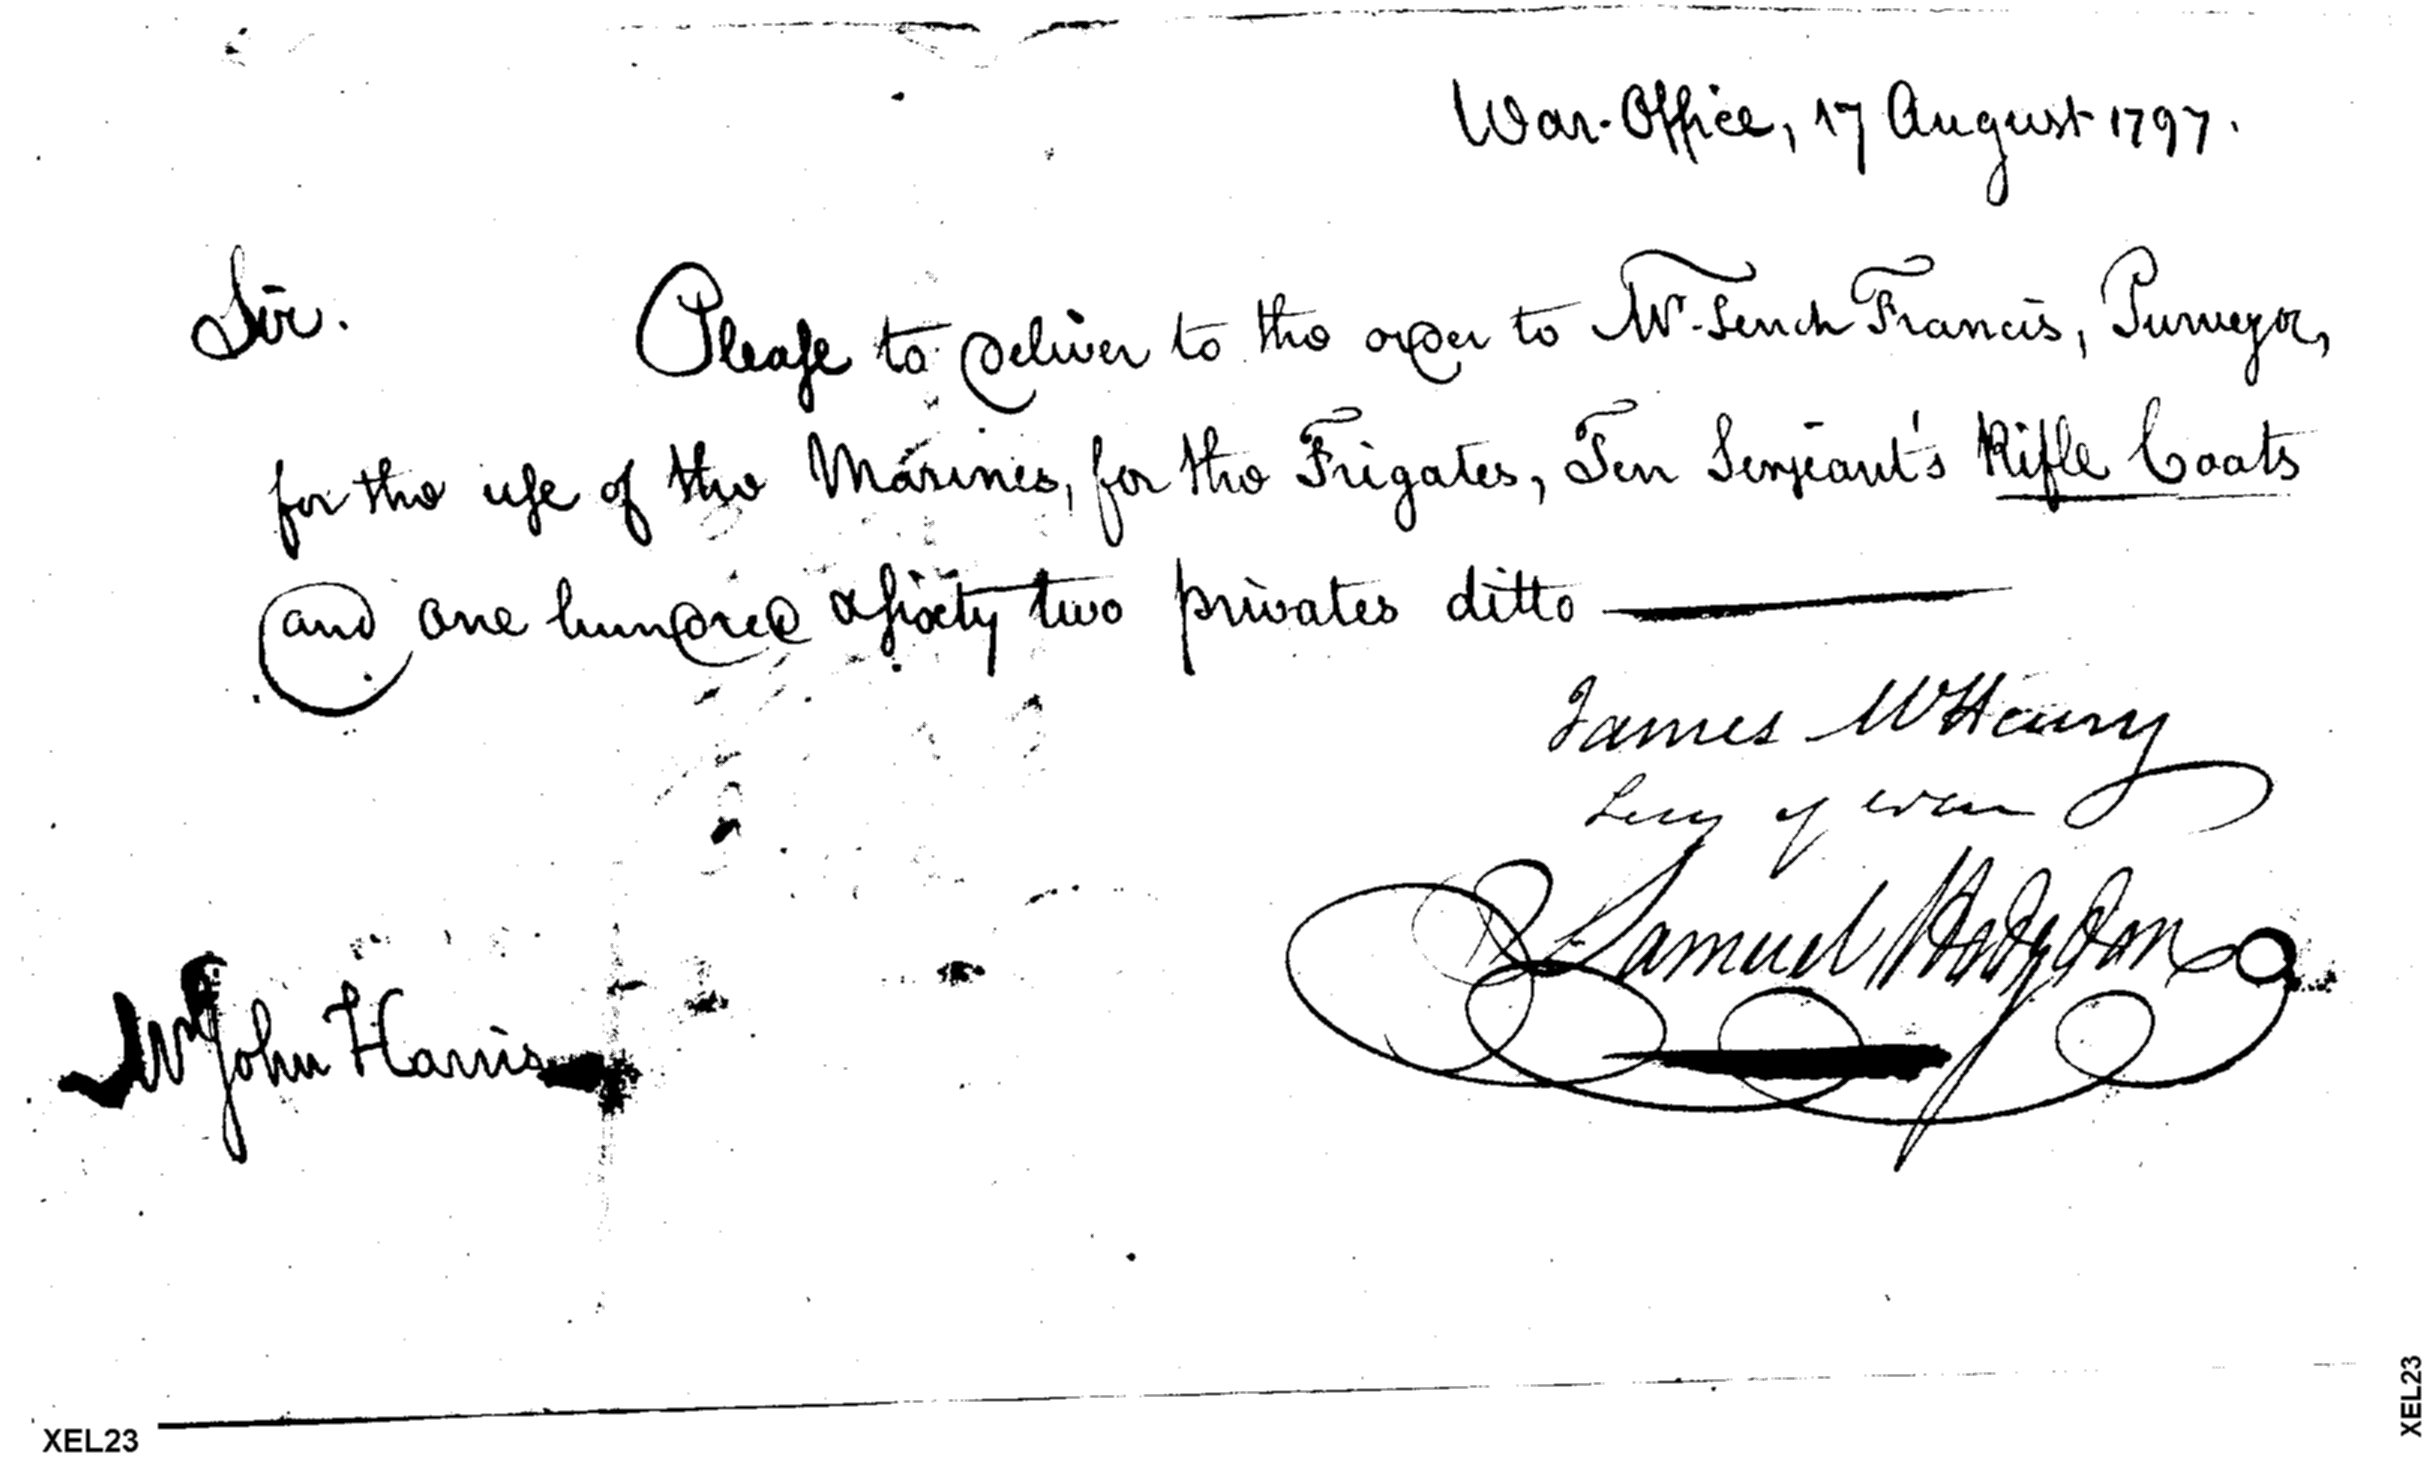 War-Office, 17 August 1797.
Sir.
Please to deliver to the order to Mr. Tench Francis, Purveyor,
for the use of the Marines, for the Frigates, Ten Serjeant's Rifle Coats
and one hundred & sixty two privates ditto
James McHenry
Secy of war
Samuel Hodgdon
Mr John Harris
XEL23
XEL23